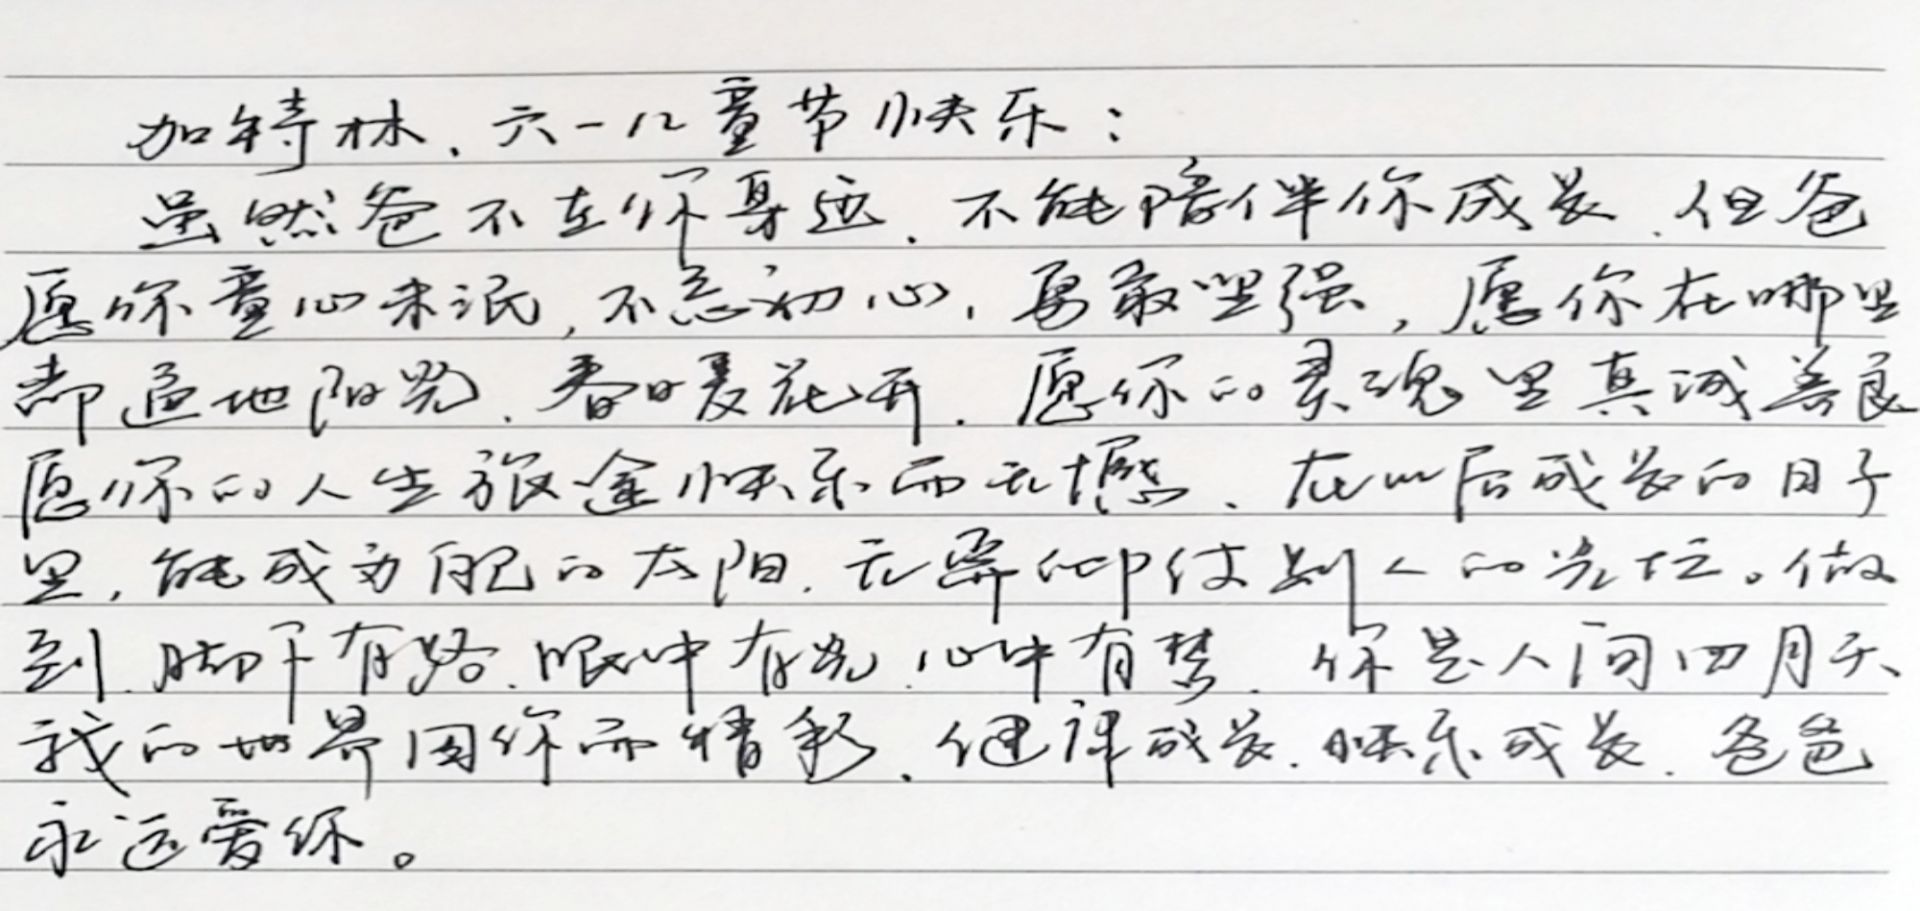 加特林、六一儿童节快乐：
虽然爸不在你身边、不能陪伴你成长、但爸
愿你童心未泯，不忘初心，勇敢坚强，愿你在哪里
都遍地阳光、春暖花开．愿你的灵魂里真诚善良
愿你的人生旅途快乐而无憾、在以后成长的日子
里，能成为自己的太阳．无需仰仗别人的光芒。做
到．脚下有路．眼中有光．心中有梦．你是人间四月天
我的世界因你而精彩．健康成长．快乐成长．爸爸
永远爱你。